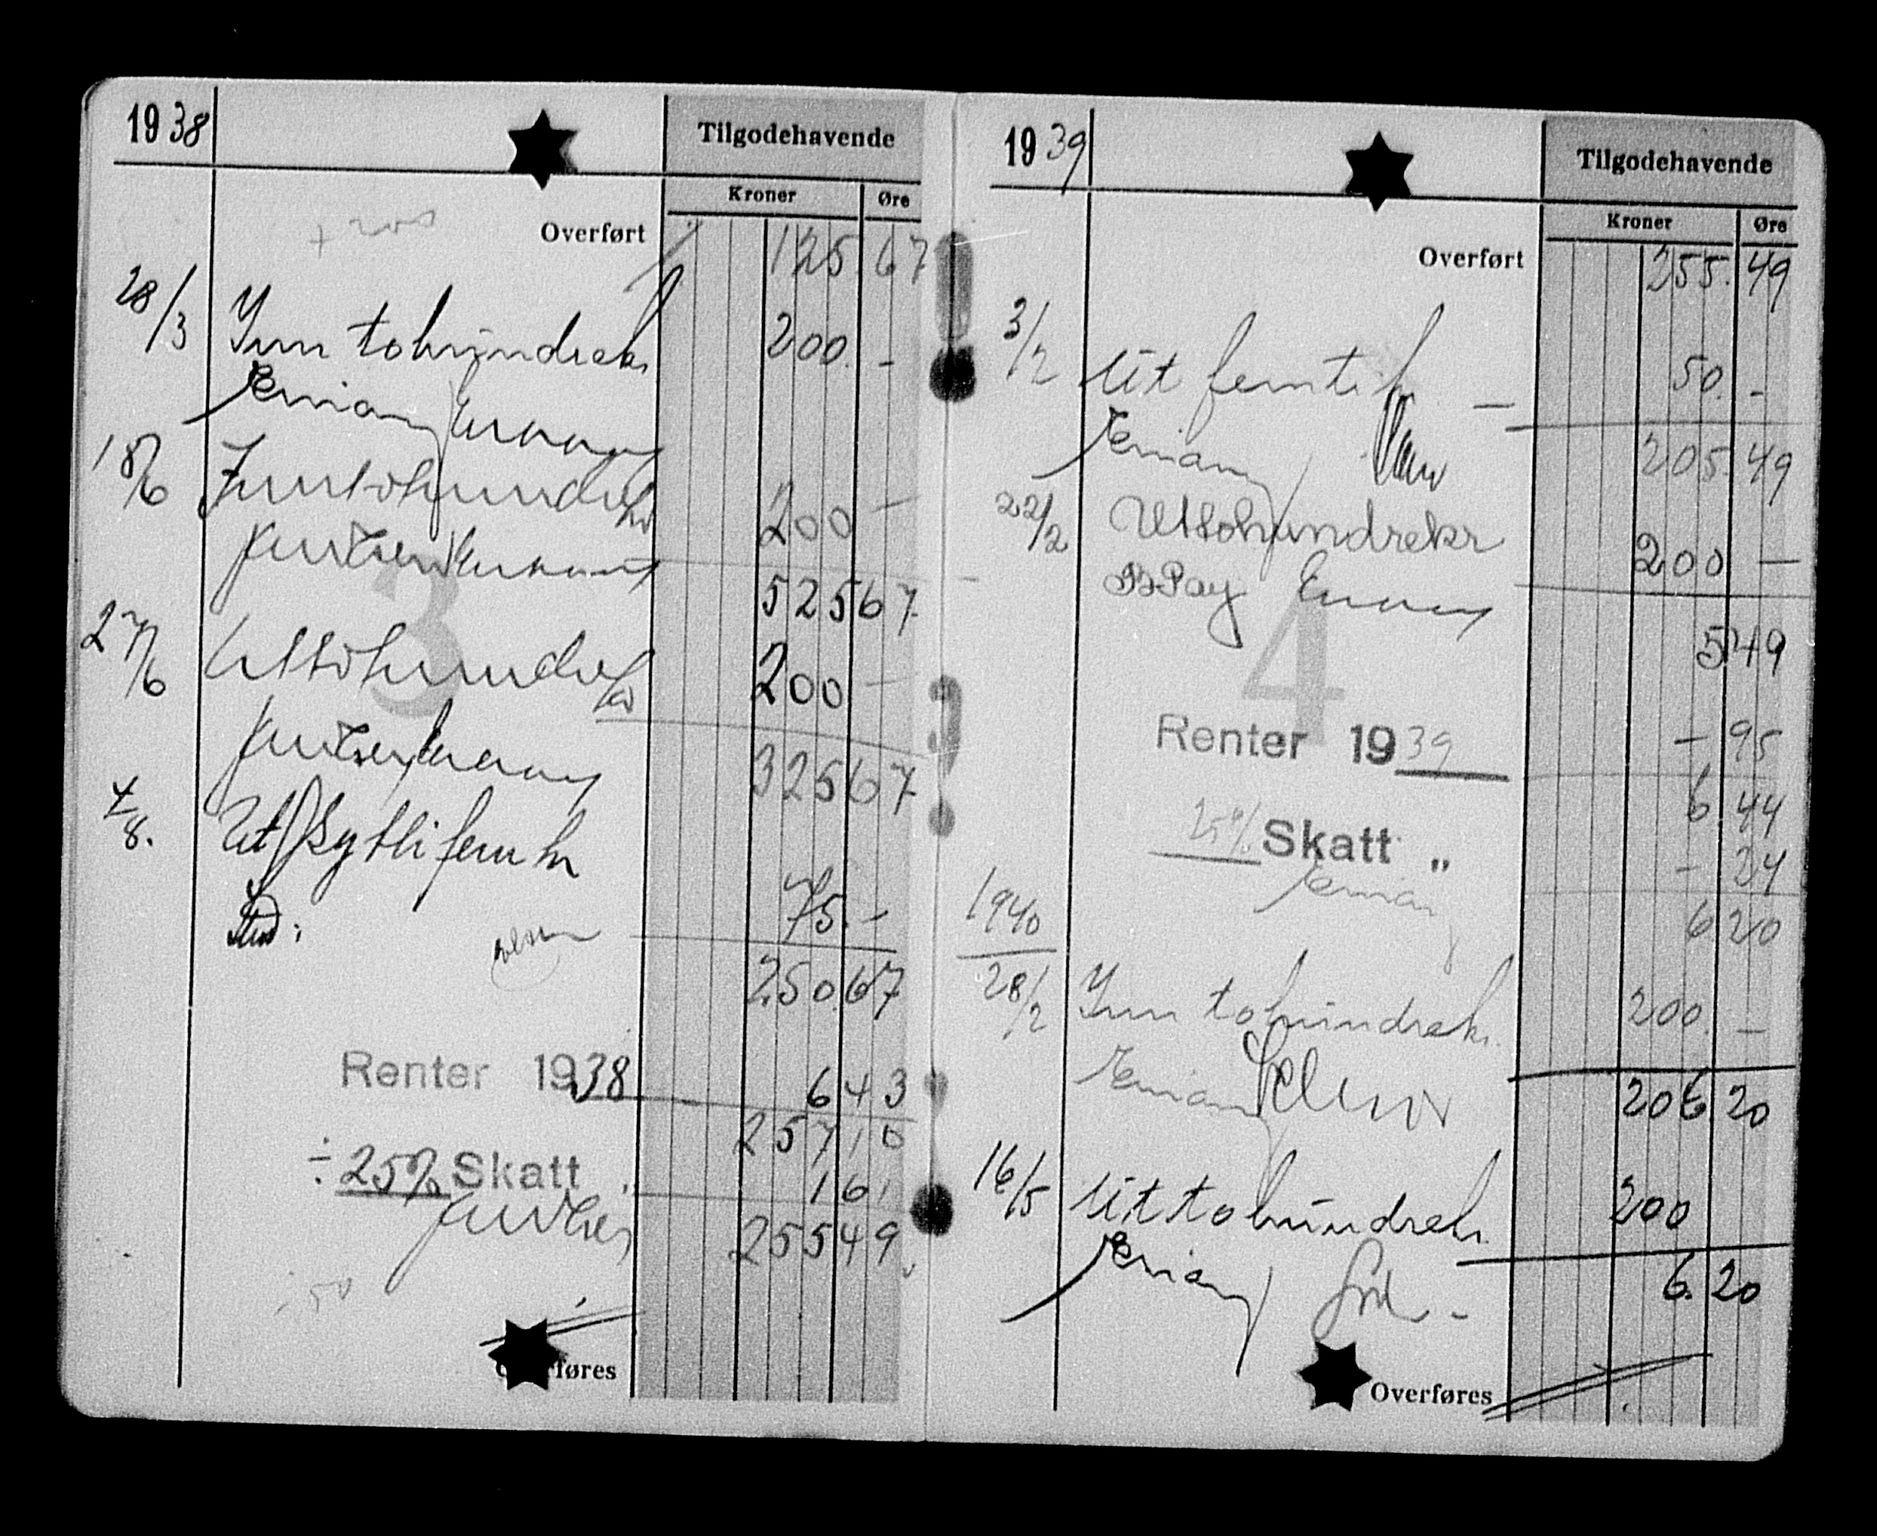 1938
Tilgodehavende
Kroner Øre
+ 200
Overført 125.67
28/3 Inn tohundrekr 200.-
18/6 Inntohundrekr 200 -
525 67
27/6 Uttohundrekr 200 -
325 67
4/8. Ut syttifem kr
75.-
250.67
Renter 1938 6 43
257 10
÷ 25% Skatt 1 61
255 49
- 50
Overføres
3
1939
Tilgodehavende
Kroner Øre
Overført 255.49
3/2 Ut femti kr - 50.-
205.49
22/2 Uttohundrekr 200 -
5 49
4
Renter 1939 - 95
6 44
25% Skatt „ - 24
6 20
1940
28/2 Inn tohundrekr. 200.-
206.20
16/5 Ut tohundrekr. 200
6.20
Overføres